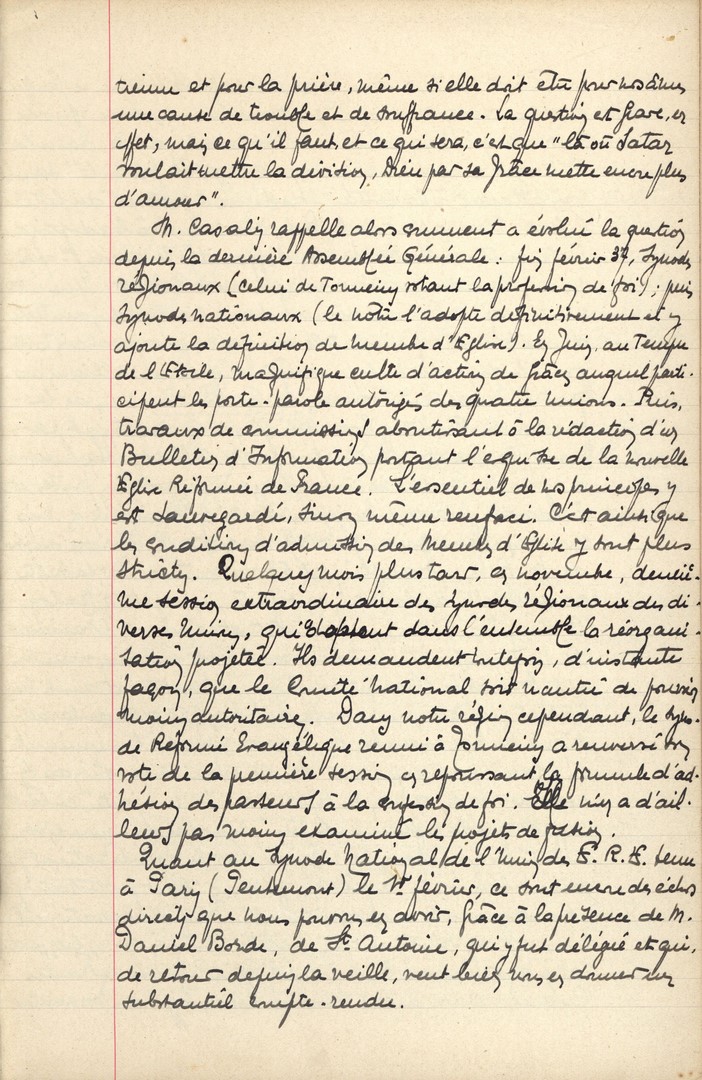 tienne et pour la prière, même si elle doit être pour nos âmes
une cause de trouble et de souffrance. La question est grave, en
effet, mais ce qu'il faut, et ce qui sera, c'est que "là où Satan
voulait mettre la division, Dieu par sa grâce mette encore plus
d'amour".
M. Casalis rappelle alors comment a évolué la question
depuis la dernière Assemblée Générale : fin février 37, Synodes
régionaux (celui de Tonneins votant la profession de foi) ; puis
Synodes nationaux (le nôtre l'adopte définitivement et y
ajoute la définition de membre d'Eglise). En Juin, au Temple
de l'Etoile, magnifique culte d'action de grâces auquel parti-
cipent les porte-parole autorisés des quatre Unions. Puis,
travaux de commissions aboutissant à la rédaction d'un
Bulletin d'Information portant l'esquisse de la nouvelle
Eglise Réformée de France. L'essentiel de nos principes y
est sauvegardé, sinon même renforcé. C'est ainsi que
les conditions d'admission des Membres d'Eglise y sont plus
strictes. Quelques mois plus tard, en novembre, deuxiè-
me session extraordinaire des Synodes régionaux des di-
verses Unions, qui adoptent dans l'ensemble la réorgani-
sation projetée. Ils demandent toutefois, d'instante
façon, que le Comité National soit nanti de pouvoirs
moins autoritaires. Dans notre région cependant, le Syno-
de Réformé Evangélique réuni à Tonneins a renversé son
vote de la première session en repoussant la formule d'ad-
hésion des pasteurs à la confession de foi. Elle n'en a d'ail-
leurs pas moins examiné les projets de fusion.
Quant au Synode National de l'Union des E. R. E. tenu
à Paris (Pentemont) le 1er février, ce sont encore des échos
directs que nous pouvons en avoir, grâce à la présence de M.
Daniel Borde, de St. Antoine, qui y fut délégué et qui,
de retour depuis la veille, veut bien nous en donner un
substantiel compte-rendu.